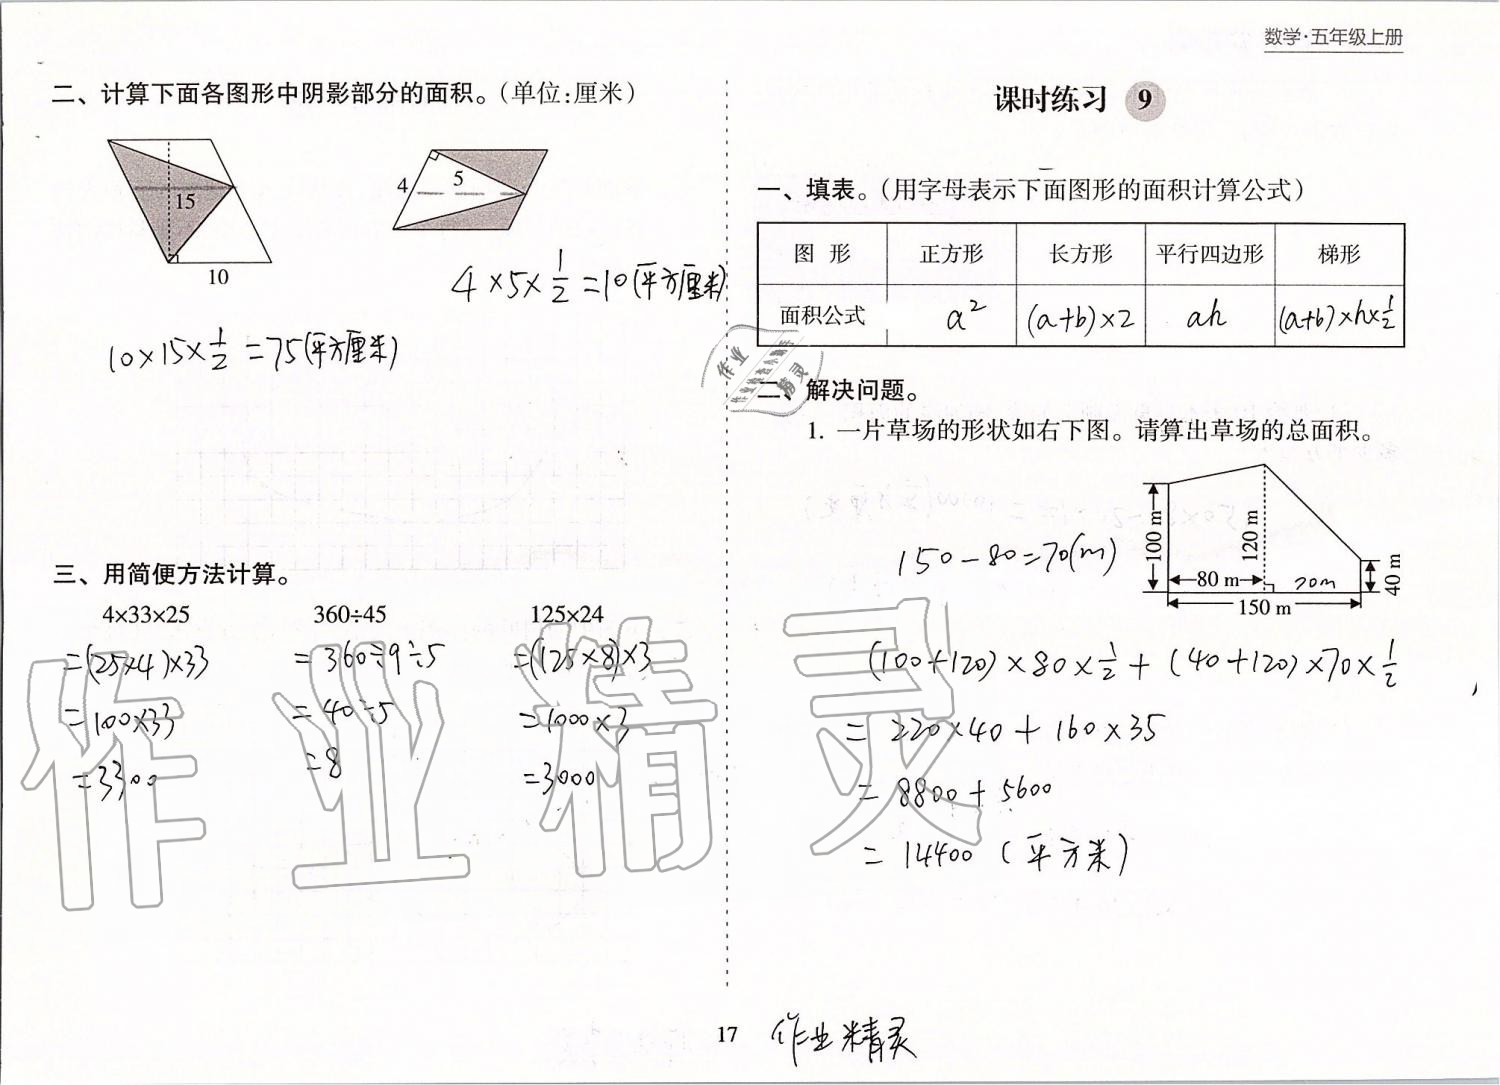 数学·五年级上册
二、计算下面各图形中阴影部分的面积。（单位:厘米）
15
10
4
5
4×5×1/2=10(平方厘米)
10×15×1/2=75(平方厘米)
三、用简便方法计算。
4×33×25 360÷45 125×24
=(25×4)×33 =360÷9÷5 =(125×8)×3
=100×33 =40÷5 =1000×3
=3300 =8 =3000
课时练习 9
一、填表。（用字母表示下面图形的面积计算公式）
图 形 正方形 长方形 平行四边形 梯形
面积公式 a² (a+b)×2 ah (a+b)×h×1/2
二、解决问题。
1. 一片草场的形状如右下图。请算出草场的总面积。
100 m
120 m
40 m
80 m
70m
150 m
150-80=70(m)
(100+120)×80×1/2+(40+120)×70×1/2
=220×40+160×35
=8800+5600
=14400(平方米)
17
作业精灵
作业精灵
作业
精灵